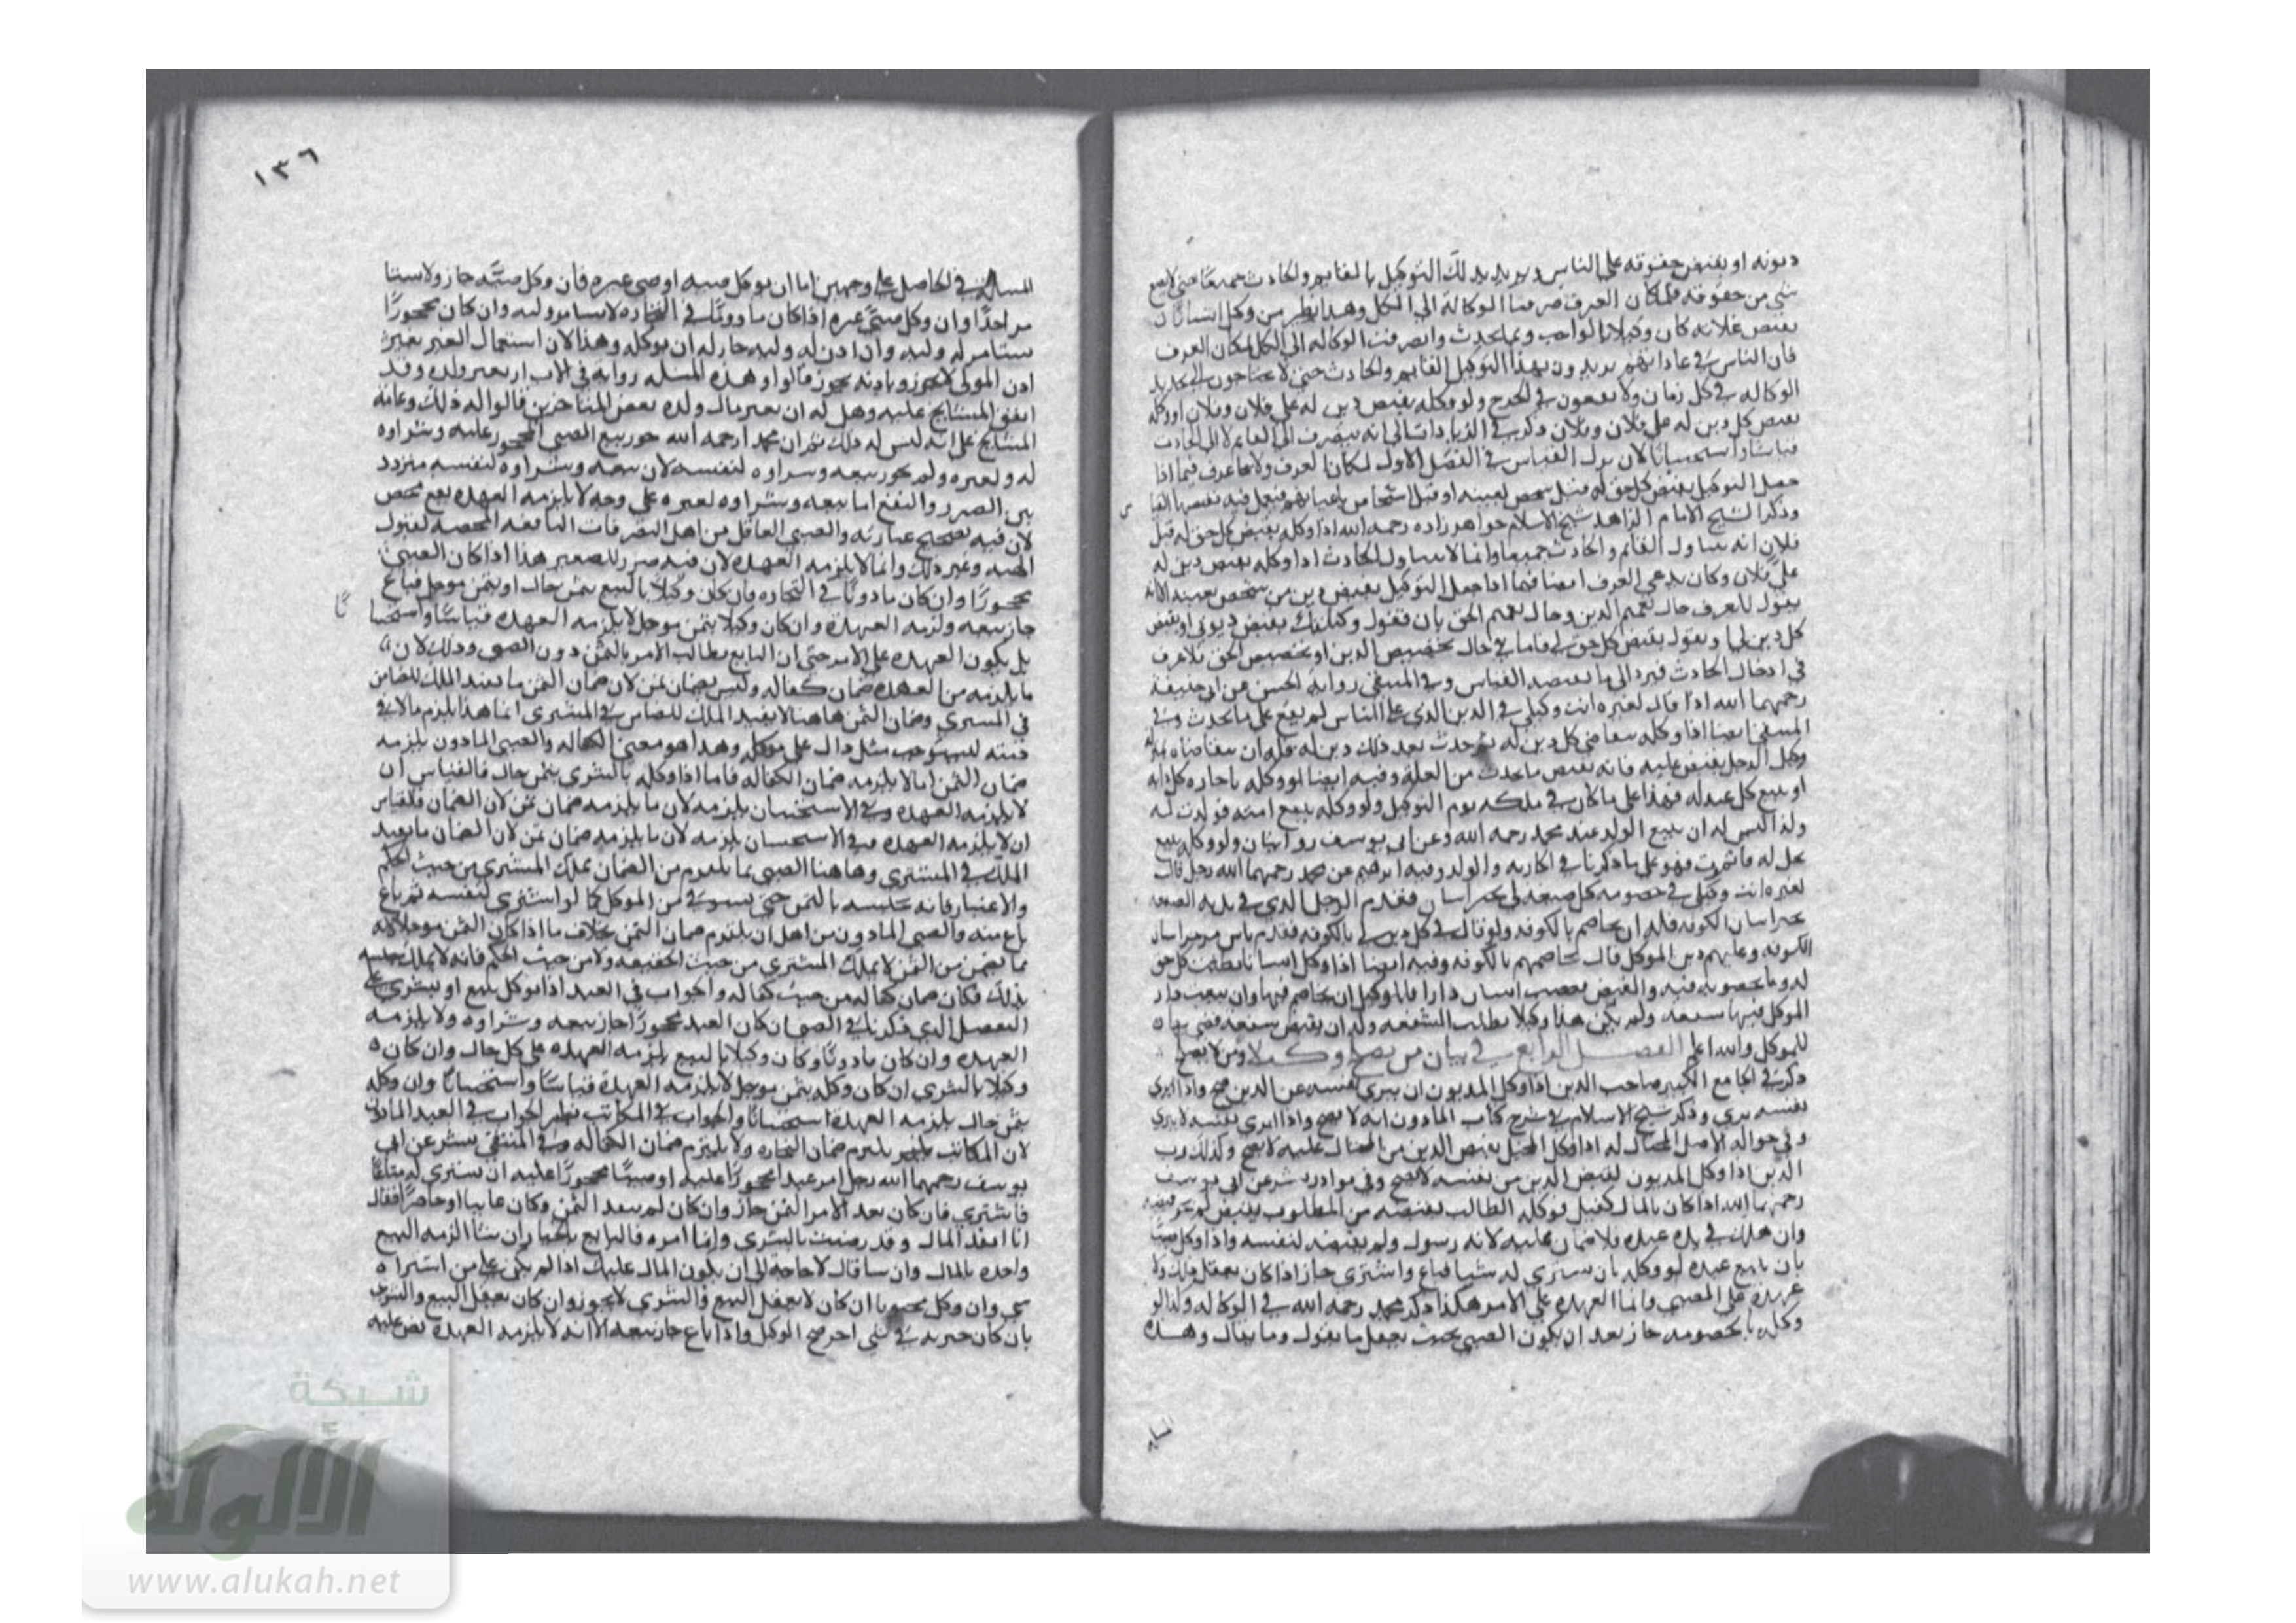 ديونه او بقبض حقوقه على الناس ويريد بذلك التوكيل بالقايم والحادث جميعًا حتى لا يضيع
شي من حقوقه فلمكان العرف صرفنا الوكالة الي الكل وهذا نظير من وكل انسانًا ان
يقبض غلاته كان وكيلا بالواجب وبما يحدث وانصرفت الوكاله الي الكل لمكان العرف
فان الناس في عاداتهم يريدون بهذا التوكيل القايم والحادث حتى لا يحتاجون الي تجديد
الوكاله في كل زمان ولا يقعون في الحرج ولو وكله بقبض دين له على فلان وفلان او وكله
بقبض كل دين له على فلان وفلان ذكر في الزيادات انه ينصرف الي القايم لا الي الحادث
قياسًا واستحسانًا لان ترك القياس في الفصل الاول لمكان العرف ولا عرف فيما اذا
جعل التوكيل بقبض كل حق له قبل شخص بعينه او قبل اشخاص باعيانهم فيعمل فيه بقضية القيا
س
وذكر الشيخ الامام الزاهد شيخ الاسلام خواهر زاده رحمه الله اذا وكله بقبض كل حق له قبل
فلان انه يتناول القايم والحادث جميعا وانما لا يتناول الحادث اذا وكله بقبض دين له
على فلان وكان يدعي العرف ايضا فيما اذا جعل التوكيل بقبض دين من شخص بعينه الا انه
يقول للعرف حال تعميم الدين وحال تعميم الحق بان تقول وكلتك بقبض ديوني او بقبض
كل دين لي او يقول بقبض كل حق لي فاما في حال تخصيص الدين او تخصيص الحق فلا عرف
في ادخال الحادث فيرد الي ما يقتضيه القياس وفي المنتقى رواية الحسن عن ابي حنيفة
رحمهما الله اذا قال لغيره انت وكيلي في الدين الذي على الناس لم يقع على ما يحدث وفي
المنتقى ايضا اذا وكله بتقاضي كل دين له ثم حدث بعد ذلك دين له فله ان يتقاضاه
وكل الرجل بقبض غلته فانه يقبض ما يحدث من الغلة وفيه ايضا لو وكله باجارة كل دابة
او بيع كل عبد له فهذا على ما كان في ملكه يوم التوكيل ولو وكله ببيع امته فولدت له
ولدا ليس له ان يبيع الولد عند محمد رحمه الله وعن ابي يوسف روايتان ولو وكله ببيع
نخل له فاثمرت فهو على ما ذكرنا في الجارية والولد وفيه ابراهيم عن محمد رحمهما الله رجل قال
لغيره انت وكيلي في خصومة كل ضيعة لي بخراسان فقدم الرجل الذي في يده الضيعه
بخراسان الكوفة فله ان يخاصم بالكوفه ولو قال في كل دين لي بالكوفه فقدم ناس من خراسان
الكوفة وعليهم دين الموكل قال يخاصمهم بالكوفه وفيه ايضا اذا وكل انسانا بطلب كل حق
له وبالخصومة فيه والقبض فغصب انسان دارا فللوكيل ان يخاصم فيها وان بيعت دار
الموكل فيها شفعة ولم يكن هذا وكيلا بطلب الشفعه وله ان يقبض شفعة قضي بها
للموكل والله اعلم الفصل الرابع في بيان من يصلح وكيلا ومن لا يصلح
ذكر في الجامع الكبير صاحب الدين اذا وكل المديون ان يبري نفسه عن الدين صح واذا ابري
نفسه بري وذكر شيخ الاسلام في شرح كتاب المادون انه لا يصح واذا ابري نفسه لا يبري
وفي حواله الاصل المحتال له اذا وكل المحيل بقبض الدين من المحتال عليه لا يصح وكذلك رب
الدين اذا وكل المديون بقبض الدين من نفسه لا يصح وفي نوادر بشر عن ابي يوسف
رحمهما الله اذا كان بالمال كفيل فوكله الطالب بقبضه من المطلوب فقبض لم يجز قبضه
وان هلك في يده عبده فلا ضمان عليه لانه رسول ولم يقبضه لنفسه واذا وكل صبيا
بان يبيع عبده او وكله بان يشتري له شيا فباع واشتري جاز اذا كان يعقل ذلك ولا
عهدة على الصبي وانما العهدة علي الامر هكذا ذكر محمد رحمه الله في الوكاله وكذا لو
وكله بالخصومه جاز بعد ان يكون الصبي بحيث يعقل ما يقول وما يقال وهذه
المسايل
١٣٦
المسالة في الحاصل على وجهين اما ان يوكل صبيه او صبي غيره فان وكل صبيه جاز ولا يستا
مر احدًا وان وكل صبي غيره اذا كان ماذونًا في التجاره لا يستامر وليه وان كان محجورًا
يستامر له وليه وان اذن له وليه جاز له ان يوكله وهذا لان استعمال الغير بغير
اذن المولى لا يجوز وباذنه يجوز قالوا وهذه المسله رواية في الاب ان يعير ولده وقد
اتفق المشايخ عليه وهل له ان يعير مال ولده بعض المتاخرين قالوا له ذلك وعامة
المشايخ على انه ليس له ذلك ثم ان محمدا رحمه الله جوز بيع الصبي المحجور عليه وشراوه
له ولغيره ولم يجوز بيعه وشراوه لنفسه لان بيعه وشراوه لنفسه متردد
بين الضرر والنفع اما بيعه وشراوه لغيره على وجه لا يلزمه العهدة نفع محض
لان فيه تصحيح عبارته والصبي العاقل من اهل التصرفات النافعه المحضة كقبول
الهبه وغير ذلك وانما لا يلزمه العهدة لان فيه ضرر للصغير هذا اذا كان الصبي
محجورًا وان كان ماذونًا في التجاره فان كان وكيلا بالبيع بثمن حال او بثمن موجل فباع
جاز بيعه ولزمه العهدة وان كان وكيلا بثمن موجل لا يلزمه العهدة قياسًا واستحسا
نًا
بل يكون العهدة على الامر حتى ان البايع يطالب الامر بالثمن دون الصبي وذلك لان
ما يلزمه من العهدة ضمان كفاله وليس بضمان ثمن لان ضمان الثمن ما يفيد الملك للضامن
في المشتري وضمان الثمن هاهنا لا يفيد الملك للضامن في المشترى انما هذا يلزم مالا في
ذمته ليستوجب مثل ذلك على موكله وهذا هو معنى الكفاله والصبي الماذون يلزمه
ضمان الثمن اما لا يلزمه ضمان الكفاله فاما اذا وكله بالشري بثمن حال فالقياس ان
لا يلزمه العهدة وفي الاستحسان يلزمه لان ما يلزمه ضمان ثمن لان الضمان فالقياس
ان لا يلزمه العهده وفي الاستحسان يلزمه لان ما يلزمه ضمان ثمن لان الضمان ما يفيد
الملك في المشتري وهاهنا الصبي بما يلتزم من الضمان يملك المشتري من حيث الحكم
والاعتبار فانه يحبسه بالثمن حتى يستوفي من الموكل كما لو اشتري لنفسه ثم باع
منه والصبي الماذون من اهل ان يلتزم ضمان الثمن بخلاف ما اذا كان الثمن موجلا لانه
بما يضمن من الثمن لا يملك المشتري من حيث الحقيقه ولا من حيث الحكم فانه لا يملك حبسه
بذلك فكان ضمان كفاله من حيث كفاله والجواب في العبد اذا توكل ببيع او بشري على
التفصيل الذي ذكرنا في الصبي ان كان العبد محجورًا جاز بيعه وشراوه ولا يلزمه
العهدة وان كان ماذونًا وكان وكيلا بالبيع يلزمه العهدة على كل حال وان كان
وكيلا بالشري ان كان وكله بثمن موجل لا يلزمه العهدة قياسًا واستحسانًا وان وكله
بثمن حال يلزمه العهدة استحسانًا والجواب في المكاتب نظير الجواب في العبد الماذون
لان المكاتب يلتزم ضمان التجاره ولا يلتزم ضمان الكفاله وفي المنتقى بشر عن ابي
يوسف رحمهما الله رجل امر عبدا محجورًا عليه او صبيًا محجورًا عليه ان يشتري له متاعًا
فاشتري فان كان نقد الامر الثمن جاز وان كان لم ينقد الثمن وكان غايبا او حاضرًا فقال
انا انقد المال وقد رضيت بالشري وانا امره فالبايع بالخيار ان شا الزمه البيع
واخذه بالمال وان شا قال لا حاجة لي ان يكون المال عليك اذا لم يكن على من اشتراه
شي وان وكل مجنونا ان كان لا يعقل البيع والشري لا يجوز وان كان يعقل البيع والشري
بان كان جنونه في شي اخر صح التوكيل واذا باع جاز بيعه الا انه لا يلزمه العهدة نص عليه
شبكة
الألوكة
www.alukah.net